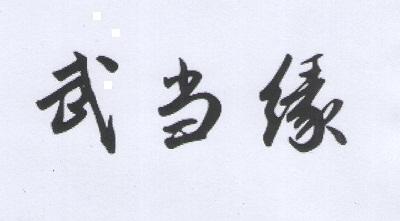 武当缘